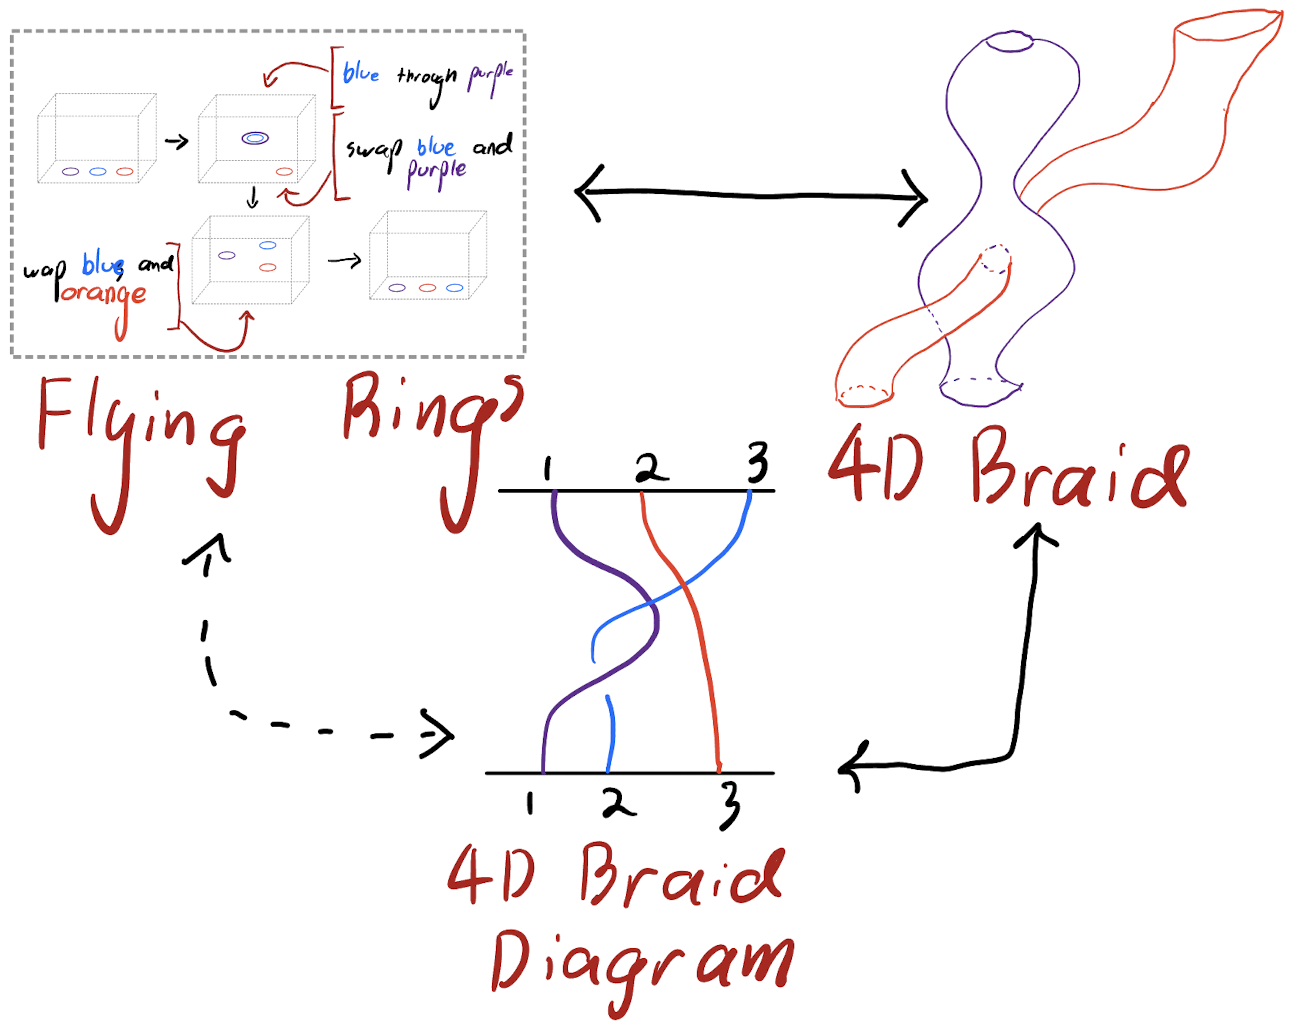 blue through purple
swap blue and
purple
wap blue and
orange
Flying Rings
4D Braid
1 2 3
1 2 3
4D Braid
Diagram